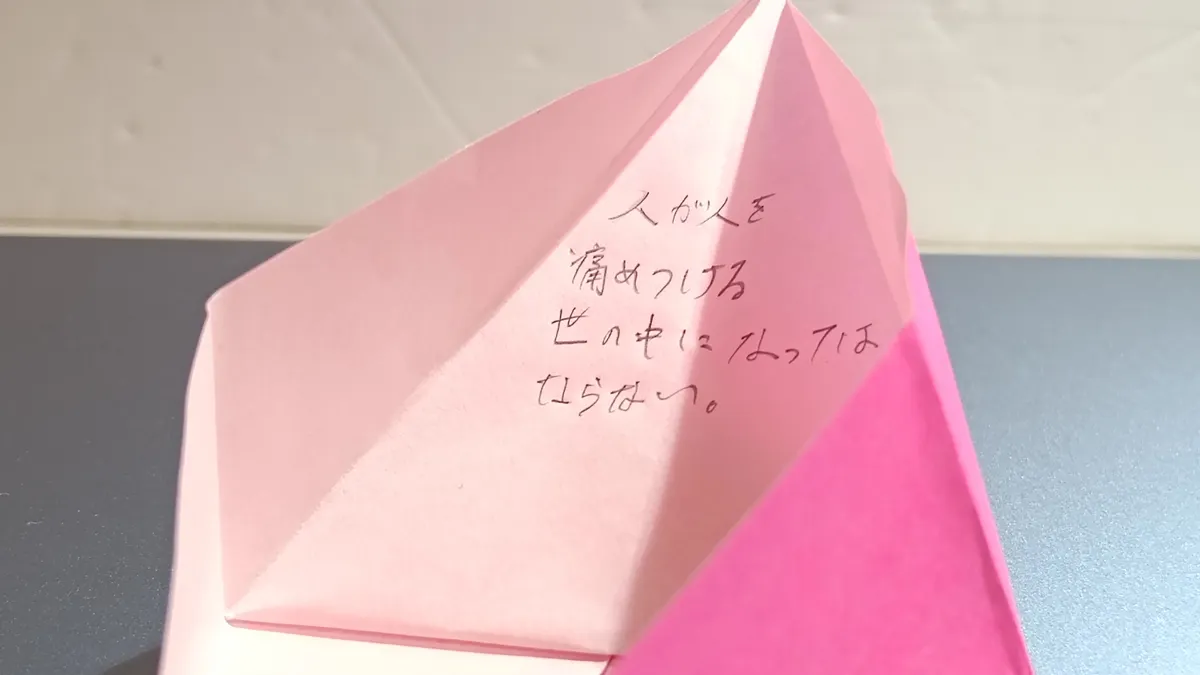 人が人を
痛めつける
世の中になっては
ならない。